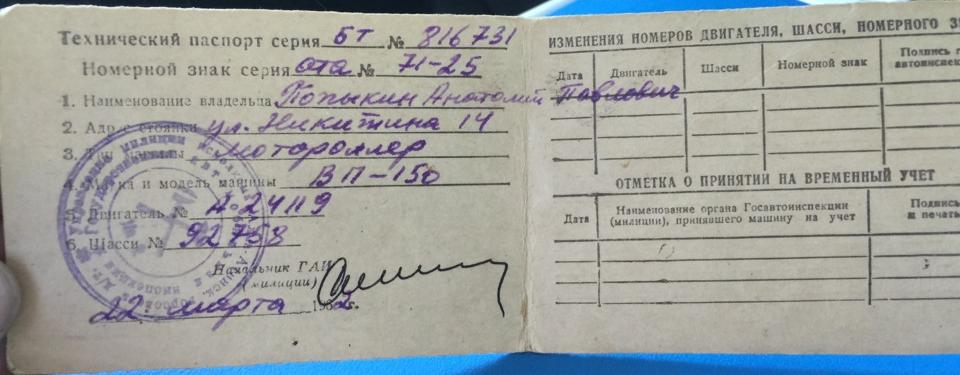 Технический паспорт серия БТ № 816731
Номерной знак серия ота № 71-25
1. Наименование владельца Попыкин Анатолий Павлович
2. Адрес стоянки ул. Никитина 14
3. Тип машины мотороллер
4. Марка и модель машины ВП-150
5. Двигатель № А-24119
6. Шасси № 92768
Начальник ГАИ
(милиции)
22 марта 1962 г.
ИЗМЕНЕНИЯ НОМЕРОВ ДВИГАТЕЛЯ, ШАССИ, НОМЕРНОГО
Дата
Двигатель
Шасси
Номерной знак
Подпись
автоинспек
ОТМЕТКА О ПРИНЯТИИ НА ВРЕМЕННЫЙ УЧЕТ
Дата
Наименование органа Госавтоинспекции
(милиции), принявшего машину на учет
Подпись
и печать